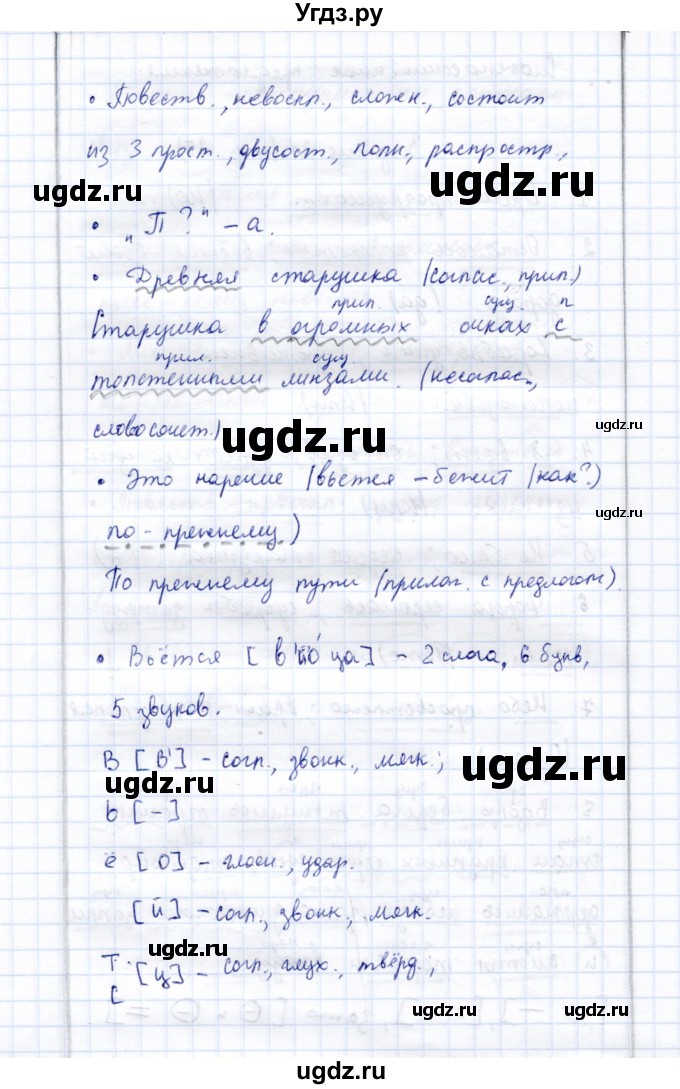 Угдз.ру
• Повеств., невоскл., сложн., состоит
из 3 прост., двусост., полн., распростр.,
ugdz.ru ugdz.ru
• „П?" – а.
• Древняя старушка (соглас., прил.)
ugdz.ru
прил. сущ. п
Старушка в огромных очках с
прил. сущ.
толстенными линзами. (несоглас.,
словосочет.)
ugdz.ru ugdz.ru
• Это наречие (вьется – бежит (как?)
по-прежнему)
ugdz.ru
По прежнему пути (прилаг. с предлогом).
• Вьётся [в'йо́ца] – 2 слога, 6 букв,
5 звуков.
В [в'] – согл., звонк., мягк.;
ugdz.ru ugdz.ru
ь [–]
ё [о] – гласн., удар.
[й] – согл., звонк., мягк.
ugdz.ru
т
с [ц] – согл., глух., твёрд.;
ugdz.ru ugdz.ru
ugdz.ru